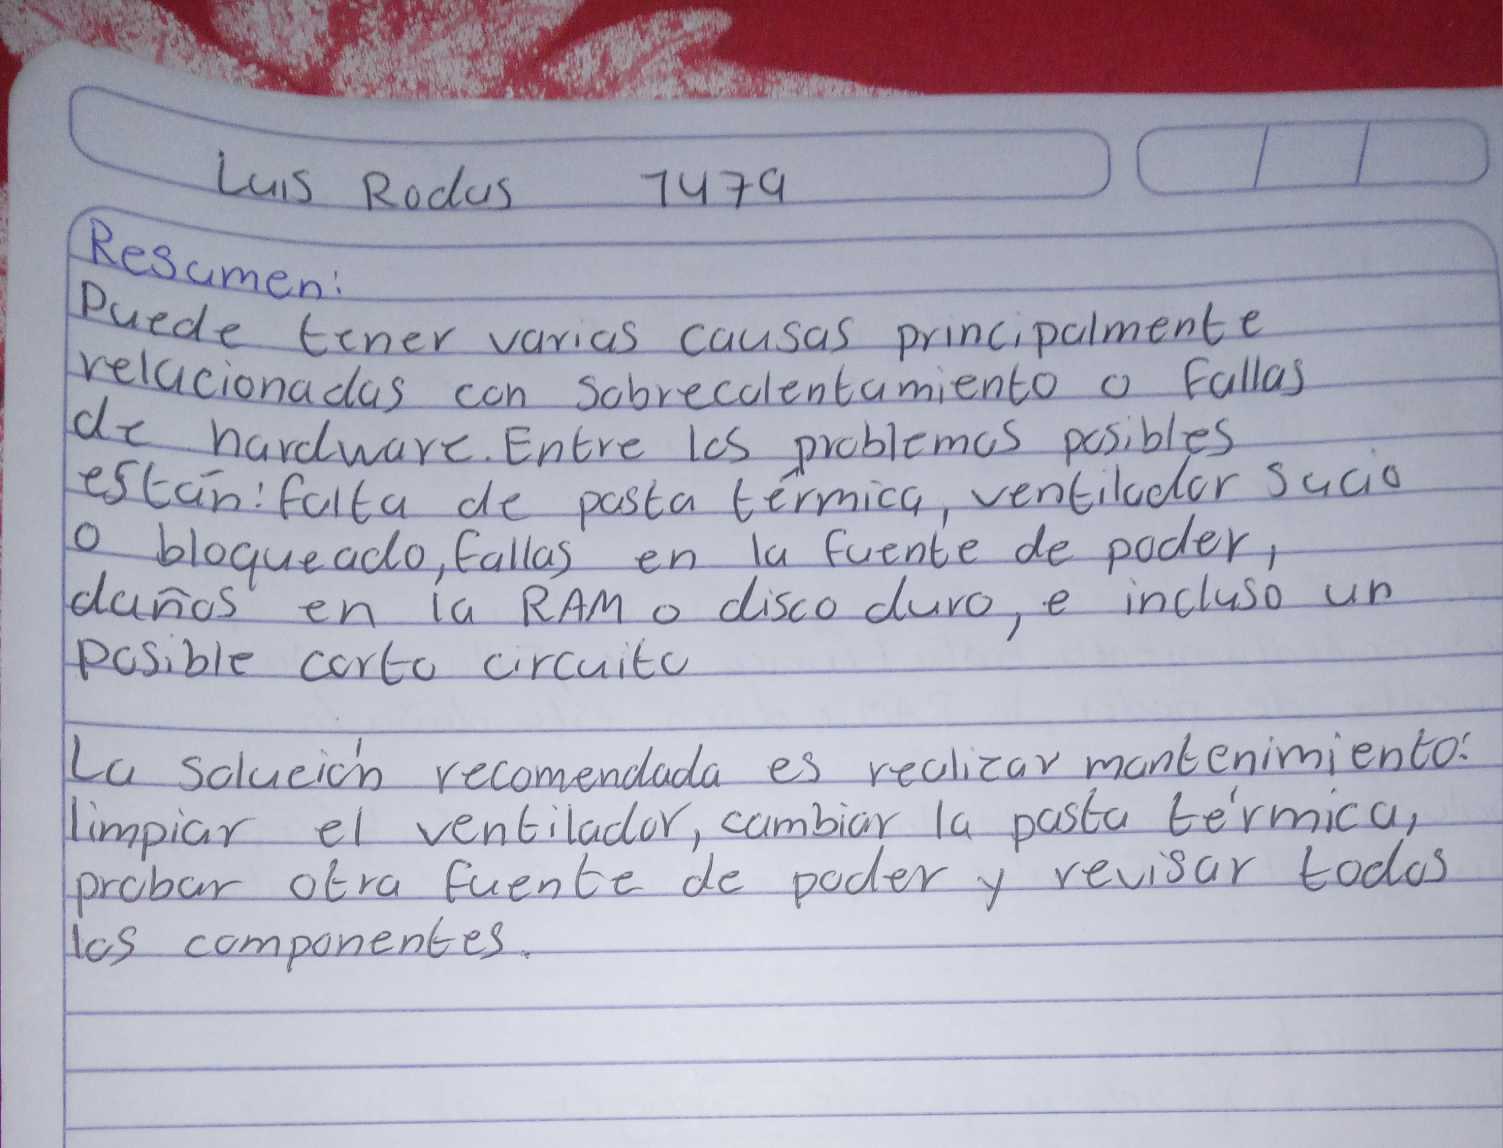 Luis Rodas 7479
Resumen:
Puede tener varias causas principalmente
relacionadas con sobrecalentamiento o fallas
de hardware. Entre los problemas posibles
están: falta de pasta térmica, ventilador sucio
o bloqueado, fallas en la fuente de poder,
daños en la RAM o disco duro, e incluso un
posible corto circuito
La solución recomendada es realizar mantenimiento:
limpiar el ventilador, cambiar la pasta térmica,
probar otra fuente de poder y revisar todos
los componentes.